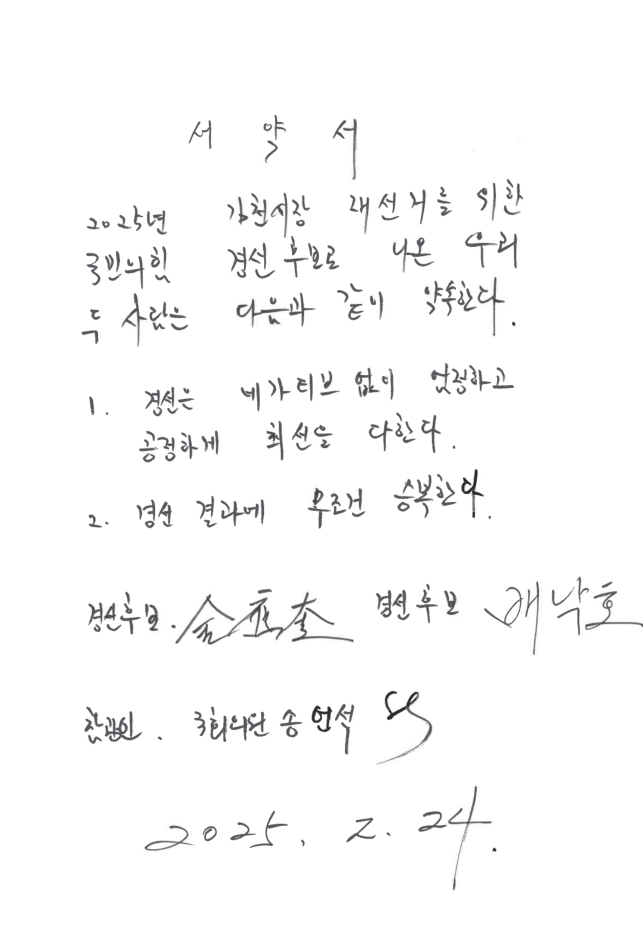 서 약 서
2025년 김천시장 재선거를 위한
국민의힘 경선 후보로 나온 우리
두 사람은 다음과 같이 약속한다.
1. 경선은 네가티브 없이 엄정하고
공정하게 최선을 다한다.
2. 경선 결과에 무조건 승복한다.
경선후보. 金應奎 경선후보 배낙호
참관인. 국회의원 송언석
2025. 2. 24.